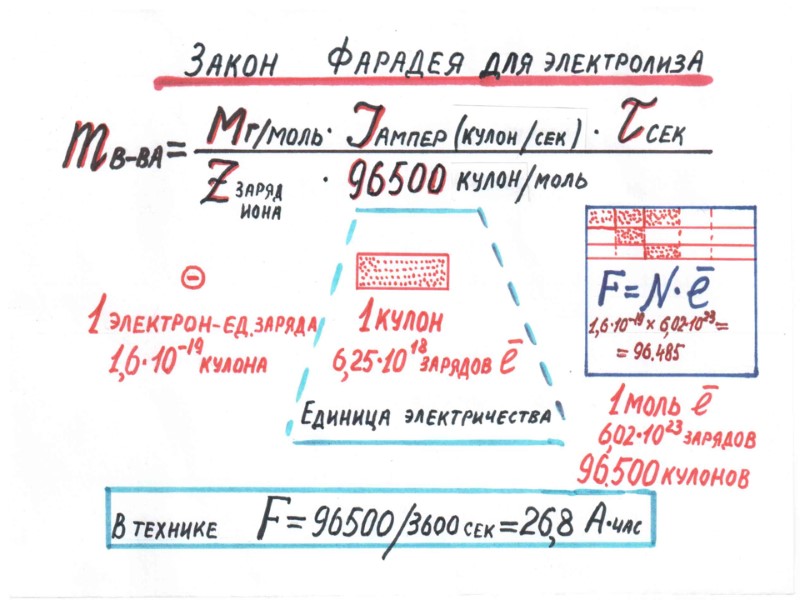 Закон Фарадея для электролиза
m в-ва = Mг/моль · Jампер (кулон/сек) · τ сек
Z заряд иона · 96500 кулон/моль
⊖
1 электрон-ед. заряда
1,6·10⁻¹⁹ кулона
1 кулон
6,25·10¹⁸ зарядов ē
Единица электричества
F = N·ē
1,6·10⁻¹⁹ x 6,02·10²³ =
= 96.485
1 моль ē
6,02·10²³ зарядов
96.500 кулонов
В технике F = 96500/3600 сек = 26,8 А·час